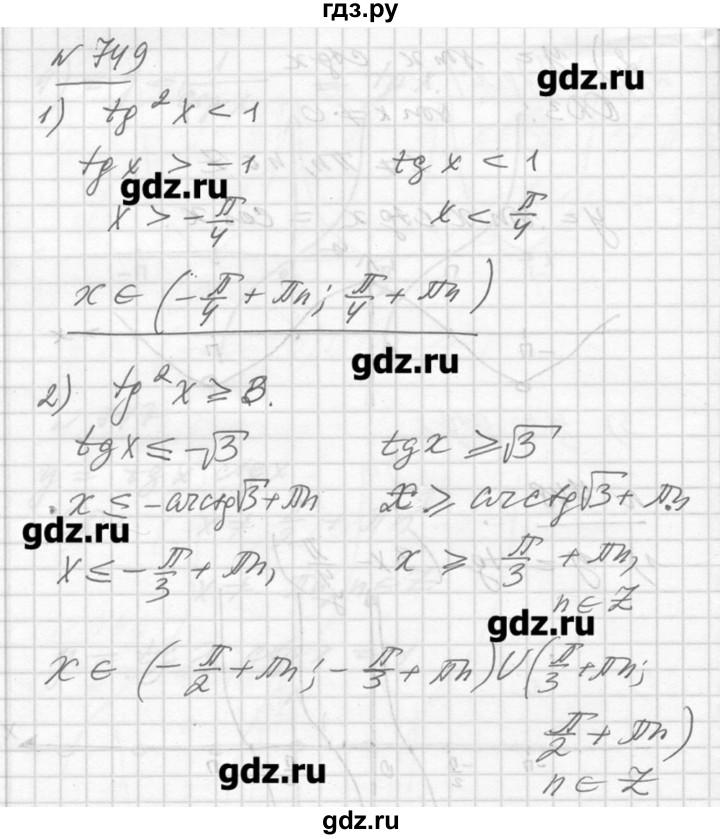 гдз.ру
№ 749
gdz.ru
1) tg²x < 1
tgx > -1 tgx < 1
gdz.ru
x > -π/4 x < π/4
x ∈ (-π/4 + πn; π/4 + πn)
gdz.ru
2) tg²x ⩾ 3.
tgx ⩽ -√3 tgx ⩾ √3
x ⩽ -arctg√3 + πn x ⩾ arctg√3 + πn
gdz.ru
x ⩽ -π/3 + πn, x ⩾ π/3 + πn,
n ∈ Z
gdz.ru
x ∈ (-π/2 + πn; -π/3 + πn) ∪ (π/3 + πn;
π/2 + πn)
gdz.ru
n ∈ Z
gdz.ru